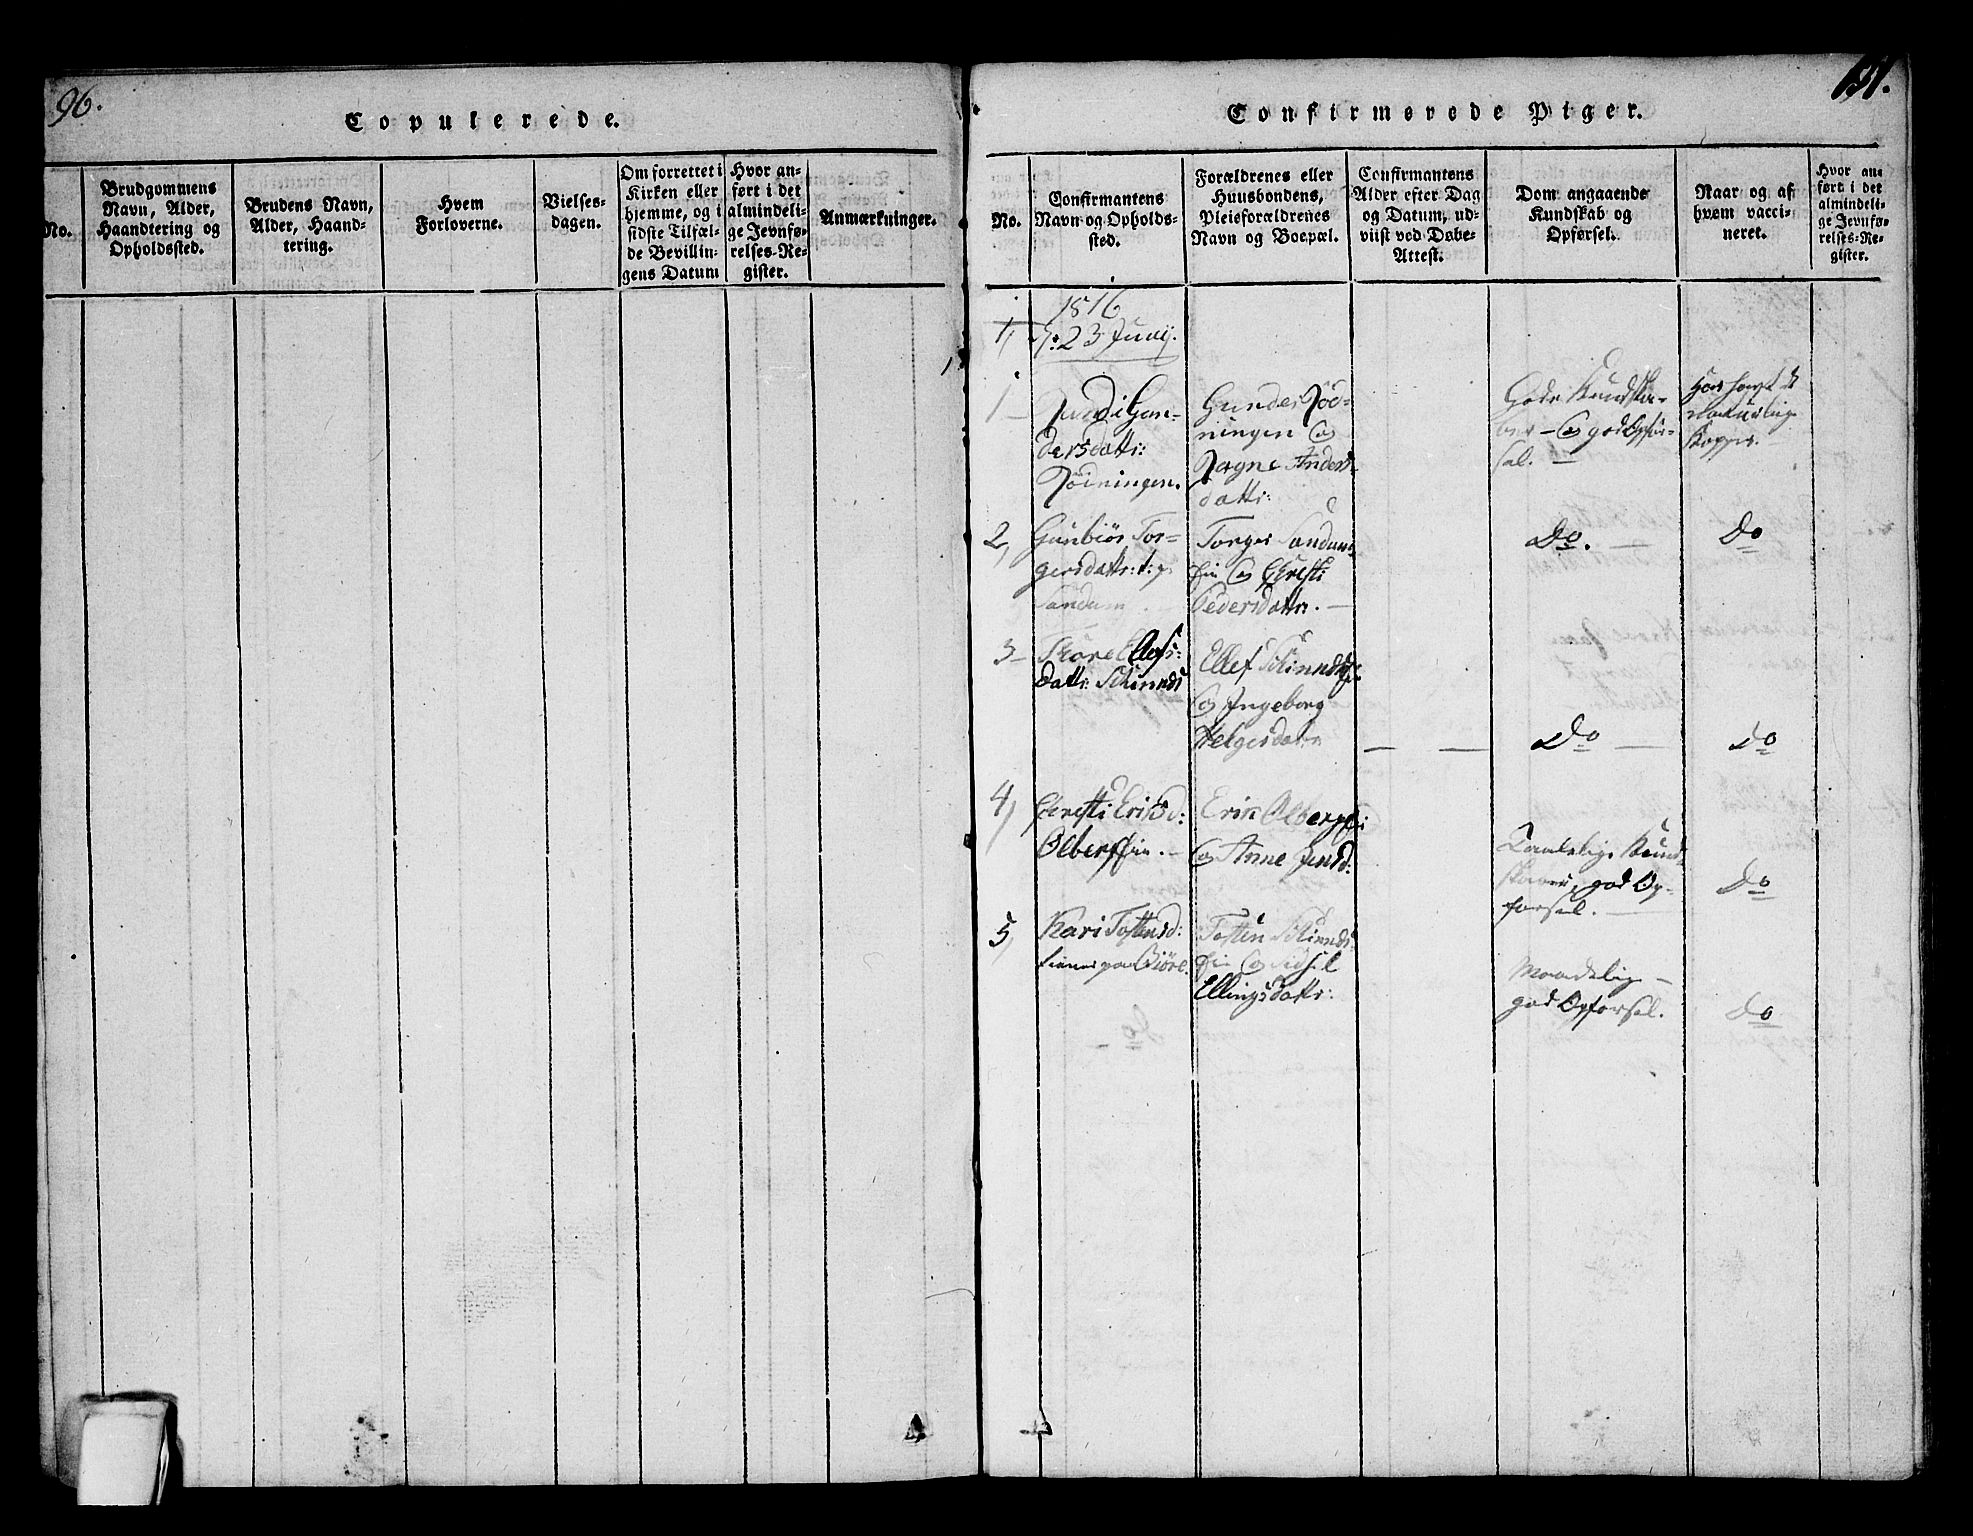 96.
Copulerede.
No.
Brudgommens
Navn, Alder,
Haandtering og
Opholdssted.
Brudens Navn,
Alder, Haand-
tering.
Hvem
Forloverne.
Vielses-
dagen.
Om forrettet i
Kirken eller
hjemme, og i
sidste Tilfæl-
de Bevillin-
gens Datum
Hvor an-
ført i det
almindeli-
ge Jevnfø-
relses-Re-
gister.
Anmærkninger.
131.
Confirmerede Piger.
No.
Confirmantens
Navn og Opholds-
sted.
Forældrenes eller
Huusbondens,
Pleieforældrenes
Navn og Boepæl.
Confirmantens
Alder efter Dag
og Datum, ud-
viist ved Døbe-
Attest.
Dom angaaende
Kundskab og
Opførsel.
Naar og af
hvem vacci-
neret.
Hvor an-
ført i det
almindeli-
ge Jevnfø-
relses-Re-
gister.
1816
23 Junij.
1
Gun-
dersdattr:
Rödningen.
Gunder Röd-
ningen og
Ragne Anders
dattr:
Gode Kundska-
ber - og god Opför-
sel. -
Har havt de
naturlige
Kopper.
2,
Gunbiör Tor-
gersdattr:
Sandum
Torger Sandum
og Christi
Pedersdattr. -
Do.
Do
3-
Thore Ellefs:
dattr:
Ellef
og Ingeborg
Helgesdattr
Do
Do
4,
Christi Erichsd:
Olberg
Erich Olberg
og Anne Jensd:
Taalelige Kund-
skaber, god Op-
førsel. -
Do
5,
Kari Tostensd:
Tosten
og Sidsel
Ellingsdattr:
Maadelig -
god Opførsel.
Do